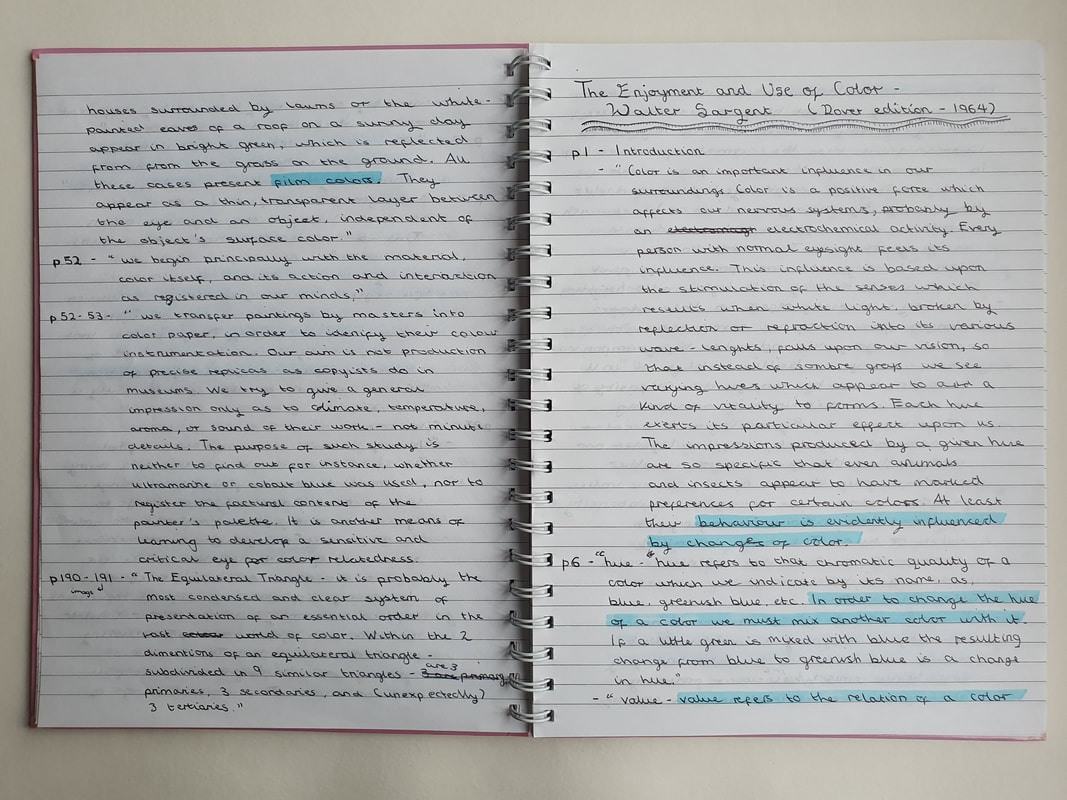 houses surrounded by lawns or the white-
painted eaves of a roof on a sunny day
appear in bright green, which is reflected
from from the grass on the ground. All
these cases present film colors. They
appear as a thin, transparent layer between
the eye and an object, independent of
the object's surface color."
p.52 - "we begin principally with the material,
color itself, and its action and interaction
as registered in our minds."
p.52-53 - "we transfer paintings by masters into
color paper, in order to idenify their colour
instrumentation. Our aim is not production
of precise repicas as copyists do in
museums. We try to give a general
impression only as to climate, temperature,
aroma, or sound of their work - not minute
details. The purpose of such study is
neither to find out for instance, whether
ultramarine or cobalt blue was used, nor to
register the factural content of the
painter's palette. It is another means of
learning to develop a sensitive and
critical eye for color relatedness.
p190-191 - "The Equilateral Triangle - it is probably the
image
most condensed and clear system of
presentation of an essential order in the
vast colour world of color. Within the 2
dimentions of an equilateral triangle -
are 3
subdivided in 9 similar triangles - 3 are primary
primaries, 3 secondaries, and (unexpectedly)
3 tertiaries."
The Enjoyment and Use of Color -
Walter Sargent (Dover edition - 1964)
p1 - Introduction
- "Color is an important influence in our
surroundings. Color is a positive force which
affects our nervous systems, probably by
an electrochemical activity. Every
person with normal eyesight feels its
influence. This influence is based upon
the stimulation of the senses which
results when white light, broken by
reflection or refraction into its various
wave-lenghts, falls upon our vision, so
that instead of sombre grays we see
varying hues which appear to add a
kind of vitality to forms. Each hue
exerts its particular effect upon us.
The impressions produced by a given hue
are so specific that even animals
and insects appear to have marked
preferences for certain colors. At least
their behaviour is evidently influenced
by changes of color.
p6 - "hue - "hue refers to that chromatic quality of a
color which we indicate by its name, as,
blue, greenish blue, etc. In order to change the hue
of a color we must mix another color with it.
If a little green is mixed with blue the resulting
change from blue to greenish blue is a change
in hue."
- "value - value refers to the relation of a color